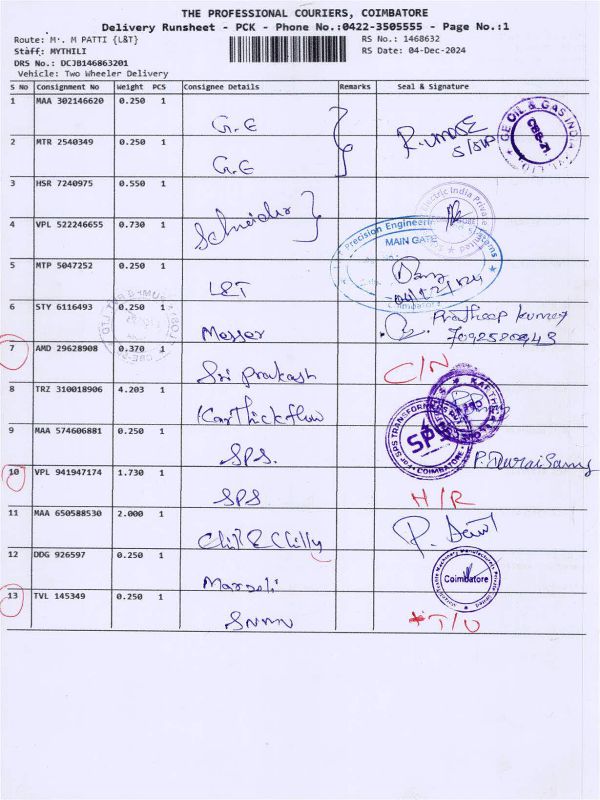 THE PROFESSIONAL COURIERS, COIMBATORE
Delivery Runsheet - PCK - Phone No.:0422-3505555 - Page No.:1
Route: M . M PATTI {L&T}
RS No.: 1468632
Staff: MYTHILI
RS Date: 04-Dec-2024
DRS No.: DCJB146863201
Vehicle: Two Wheeler Delivery
S No Consignment No Weight PCS Consignee Details Remarks Seal & Signature
1 MAA 302146620 0.250 1
G.E
R.
S/SUP
GE OIL & GAS INDIA
CBE-21
PVT. LTD
2 MTR 2540349 0.250 1
G.E
3 HSR 7240975 0.550 1
Schneider
Electric India Private
4 VPL 522246655 0.730 1
Precision Engineering Systems
MAIN GATE
Coimbatore
5 MTP 5047252 0.250 1
L&T
04/12/2024
6 STY 6116493 0.250 1
Messer
Pratheep Kumar
7092580943
7 AMD 29628908 0.370 1
Sri Prakash
C/N
8 TRZ 310018906 4.203 1
Karthickflow
9 MAA 574606881 0.250 1
SPS.
SPS TRANSFORMERS
SPS
COIMBATORE
P. Durai Samy
10 VPL 941947174 1.730 1
SPS
H/R
11 MAA 650588530 2.000 1
Chil & Chilly
P.
12 DDG 926597 0.250 1
Marseli
Coimbatore
13 TVL 145349 0.250 1
SNMN
T/U